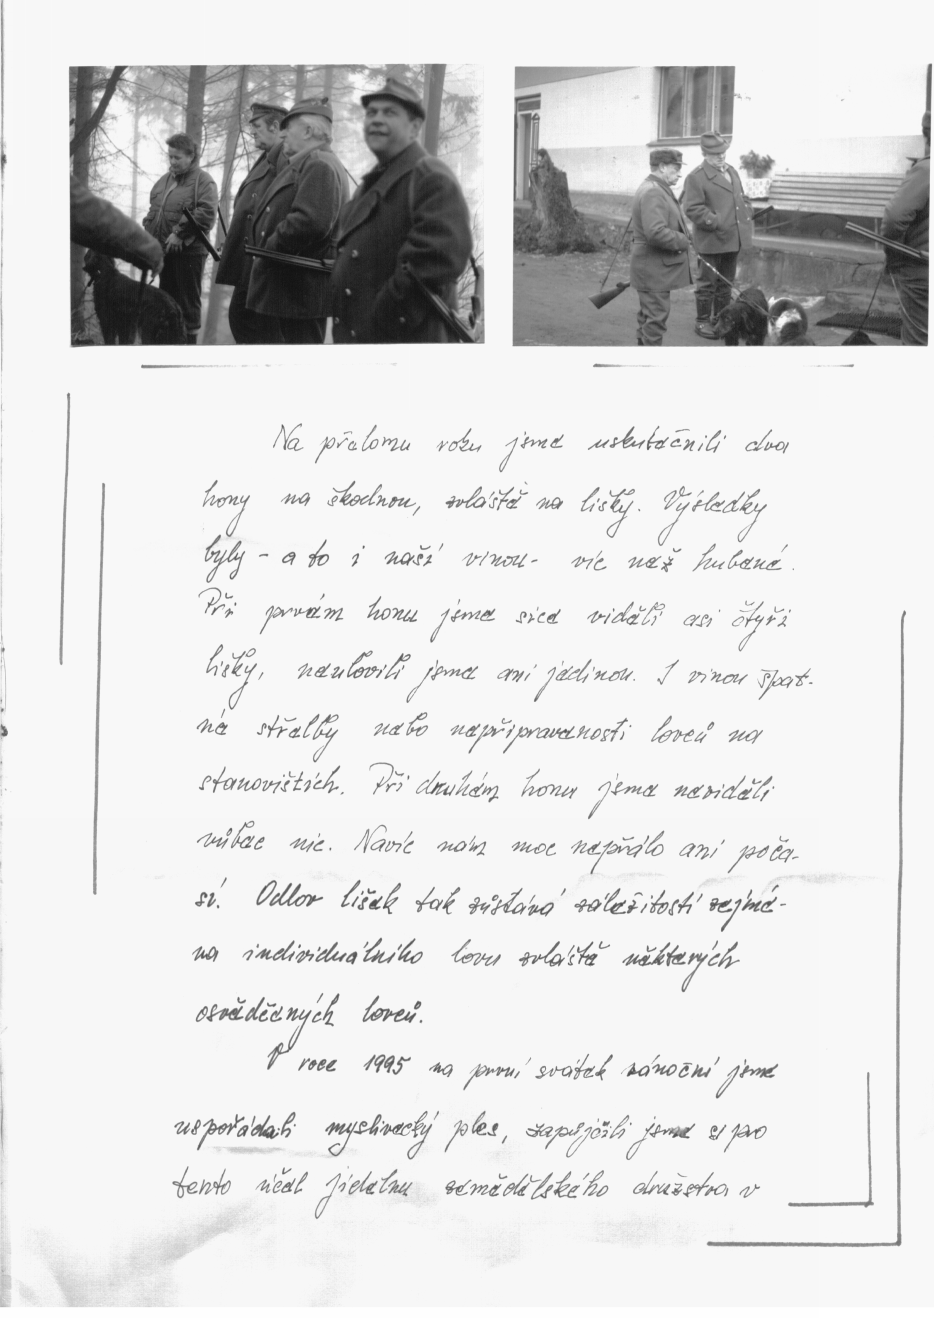 Na přelomu roku jsme uskutečnili dva
hony na škodnou, zvláště na lišky. Výsledky
byly - a to i naší vinou - víc než hubené.
Při prvém honu jsme sice viděli asi čtyři
lišky, neulovili jsme ani jedinou. I vinou špat-
né střelby nebo nepřipravenosti lovců na
stanovištích. Při druhém honu jsme neviděli
vůbec nic. Navíc nám moc nepřálo ani poča-
sí. Odlov lišek tak zůstává záležitostí zejmé-
na individuálního lovu zvláště některých
osvědčených lovců.
V roce 1995 na první svátek vánoční jsme
uspořádali myslivecký ples, zapůjčili jsme si pro
tento účel jídelnu zemědělského družstva v